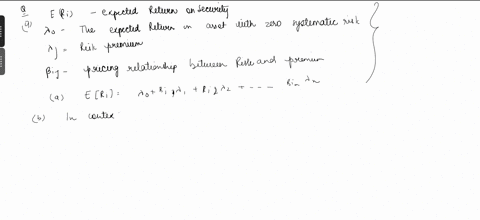 Q E(Ri) - expected Return on security
(a) λ0 - The expected Return on asset with zero systematic risk
λj - Risk premium
βij - pricing relationship between Risk and premium
(a) E[Ri] = λ0 + Bi1 λ1 + Bi2 λ2 + --- Bin λn
(b) In contex